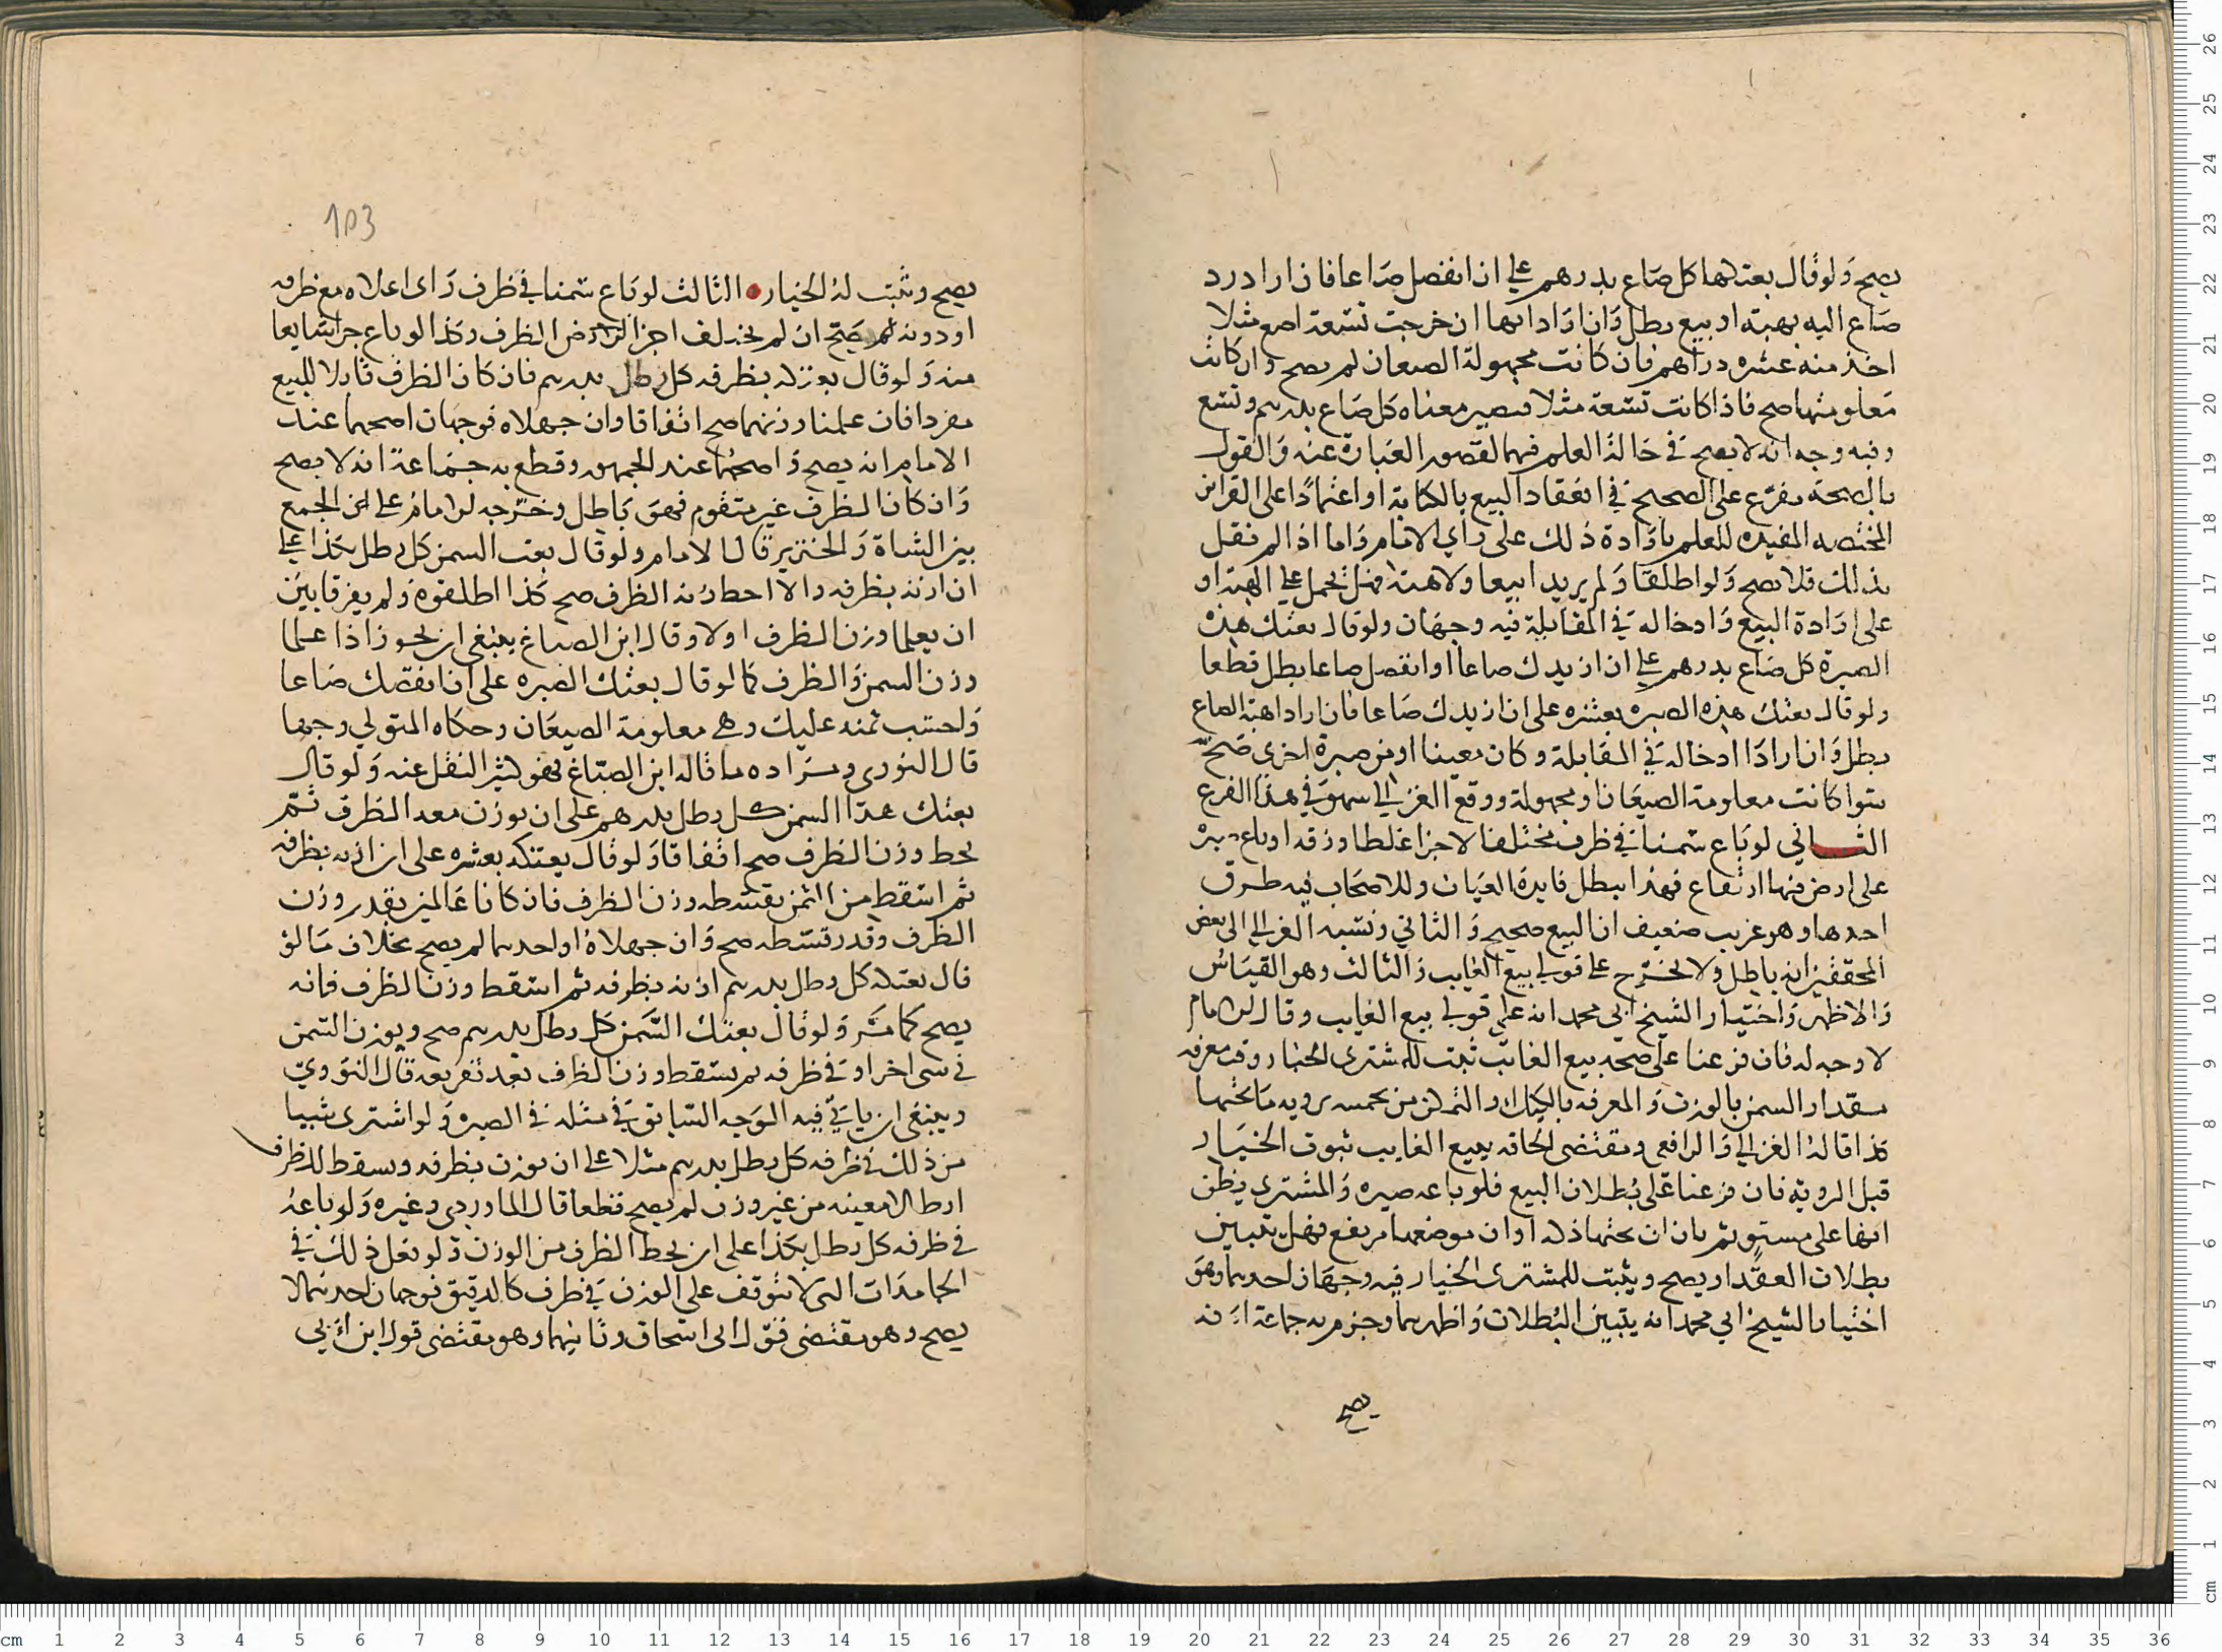 يصح ولو قال بعتكها كل صاع بدرهم على ان انفصل صاعا فان اراد رد
صاع اليه بهبة او بيع بطل وان اراد انها ان خرجت تسعة اصع مثلا
اخذ منه عشرة دراهم فان كانت مجهولة الصيعان لم يصح وان كانت
معلومتها صح فاذا كانت تسعة مثلا فيصير معناه كل صاع بدرهم وتسع
وفيه وجه انه لا يصح في حالة العلم فيها لقصور العبارة عنه والقول
بالصحة مفرع على الصحيح في انعقاد البيع بالكناية او اعتمادا على القراين
المختصه المفيده للعلم بارادة ذلك على راي الامام واما اذا لم نقل
بذلك فلا يصح ولو اطلقا ولم يريدا بيعا ولا هبة فهل يحمل على الهبة او
على ارادة البيع وادخاله في المقابلة فيه وجهان ولو قال بعتك هذه
الصبرة كل صاع بدرهم على ان ازيدك صاعا او انفصل صاعا بطل قطعا
ولو قال بعتك هذه الصبره بعشره على ان ازيدك صاعا فان اراد هبة الصاع
بطل وان ارادا ادخاله في المقابلة وكان معينا او من صبرة اخرى صح
سوا كانت معلومة الصيعان او مجهولة ووقع للغزالي سهو في هذا الفرع
الثــاني لو باع سمنا في ظرف مختلف الاجزا غلطا ورقة او باع صبره
على ارض فيها ارتفاع فهذا يبطل فايدة العيان وللاصحاب فيه طرق
احدها وهو غريب ضعيف ان البيع صحيح والثاني ونسبه الغزالي الى بعض
المحققين انه باطل ولا يخرج على قولي بيع الغايب والثالث وهو القياس
والاظهر واختيار الشيخ ابي محمد انه على قولي بيع الغايب وقال الامام
لا وجه له فان فرعنا على صحه بيع الغائب ثبت للمشتري الخيار وقت معرفه
مقدار السمن بالوزن والمعرفه بالكيل او التمكن من تخمينه برويه ما تحتها
كذا قاله الغزالي والرافعي ومقتضى الحاقه ببيع الغايب ثبوت الخيار
قبل الروية فان فرعنا على بطلان البيع فلو باعه صبره والمشتري يظن
انها على مستو ثم بان ان تحتها دكه او ان موضعها مرتفع فهل يتبين
بطلان العقد او يصح ويثبت للمشتري الخيار فيه وجهان احدهما وهو
اختيار الشيخ ابي محمد انه يتبين البطلان واظهرهما وجزم به جماعة انه
يصح
103
يصح ويثبت له الخيار ه الثالث لو باع سمنا في ظرف راى اعلاه مع ظرفه
او دونه صح ان لم يختلف اجزا الظرف وكذا لو باع جزا شايعا
منه ولو قال بعتكه بظرفه كل رطل بدرهم فان كان الظرف قابلا للبيع
مفردا فان علمنا وزنهما صح اتفاقا وان جهلاه فوجهان اصحهما عند
الامام انه يصح واصحهما عند الجمهور وقطع به جماعة انه لا يصح
وان كان الظرف غير متقوم فهو باطل وخرجه الامام على الجمع
بين الشاة والخنزير قال الامام ولو قال بعت السمن كل رطل بكذا على
ان ازنه بظرفه والا احط وزنه الظرف صح كذا اطلقوه ولم يفرقا بين
ان يعلما وزن الظرف او لا وقال ابن الصباغ ينبغي ان يجوز اذا علما
وزن السمن والظرف كما لو قال بعتك الصبره على ان انقصك صاعا
واحتسب ثمنه عليك وهي معلومة الصيعان وحكاه المتولي وجها
قال النووي ومراده ما قاله ابن الصباغ فهو كثير النقل عنه ولو قال
بعتك هذا السمن كل رطل بدرهم على ان يوزن معه الظرف ثم
يحط وزن الظرف صح اتفاقا ولو قال بعتكه بعشره على ان ازنه بظرفه
ثم اسقط من الثمن بقسطه وزن الظرف فان كانا عالمين بقدر وزن
الظرف وقدر قسطه صح وان جهلاه او احدهما لم يصح بخلاف ما لو
قال بعتكه كل رطل بدرهم ازنه بظرفه ثم اسقط وزن الظرف فانه
يصح كما مر ولو قال بعتك السمن كل رطل بدرهم صح ويوزن السمن
في شي اخر او في ظرفه ثم يسقط وزن الظرف بعد تفريغه قال النووي
وينبغي ان ياتي فيه الوجه السابق في مثله في الصبره ولو اشترى شيا
من ذلك في ظرفه كل رطل بدرهم مثلا على ان يوزن بظرفه ويسقط للظرف
ارطالا معينه من غير وزن لم يصح قطعا قال الماوردي وغيره ولو باعه
في ظرفه كل رطل بكذا على ان يحط الظرف من الوزن ولو فعل ذلك في
الجامدات التي لا تتوقف على الوزن في ظرف كالدقيق فوجهان احدهما لا
يصح وهو مقتضى قول ابي اسحاق وثانيهما وهو مقتضى قول ابن ابي